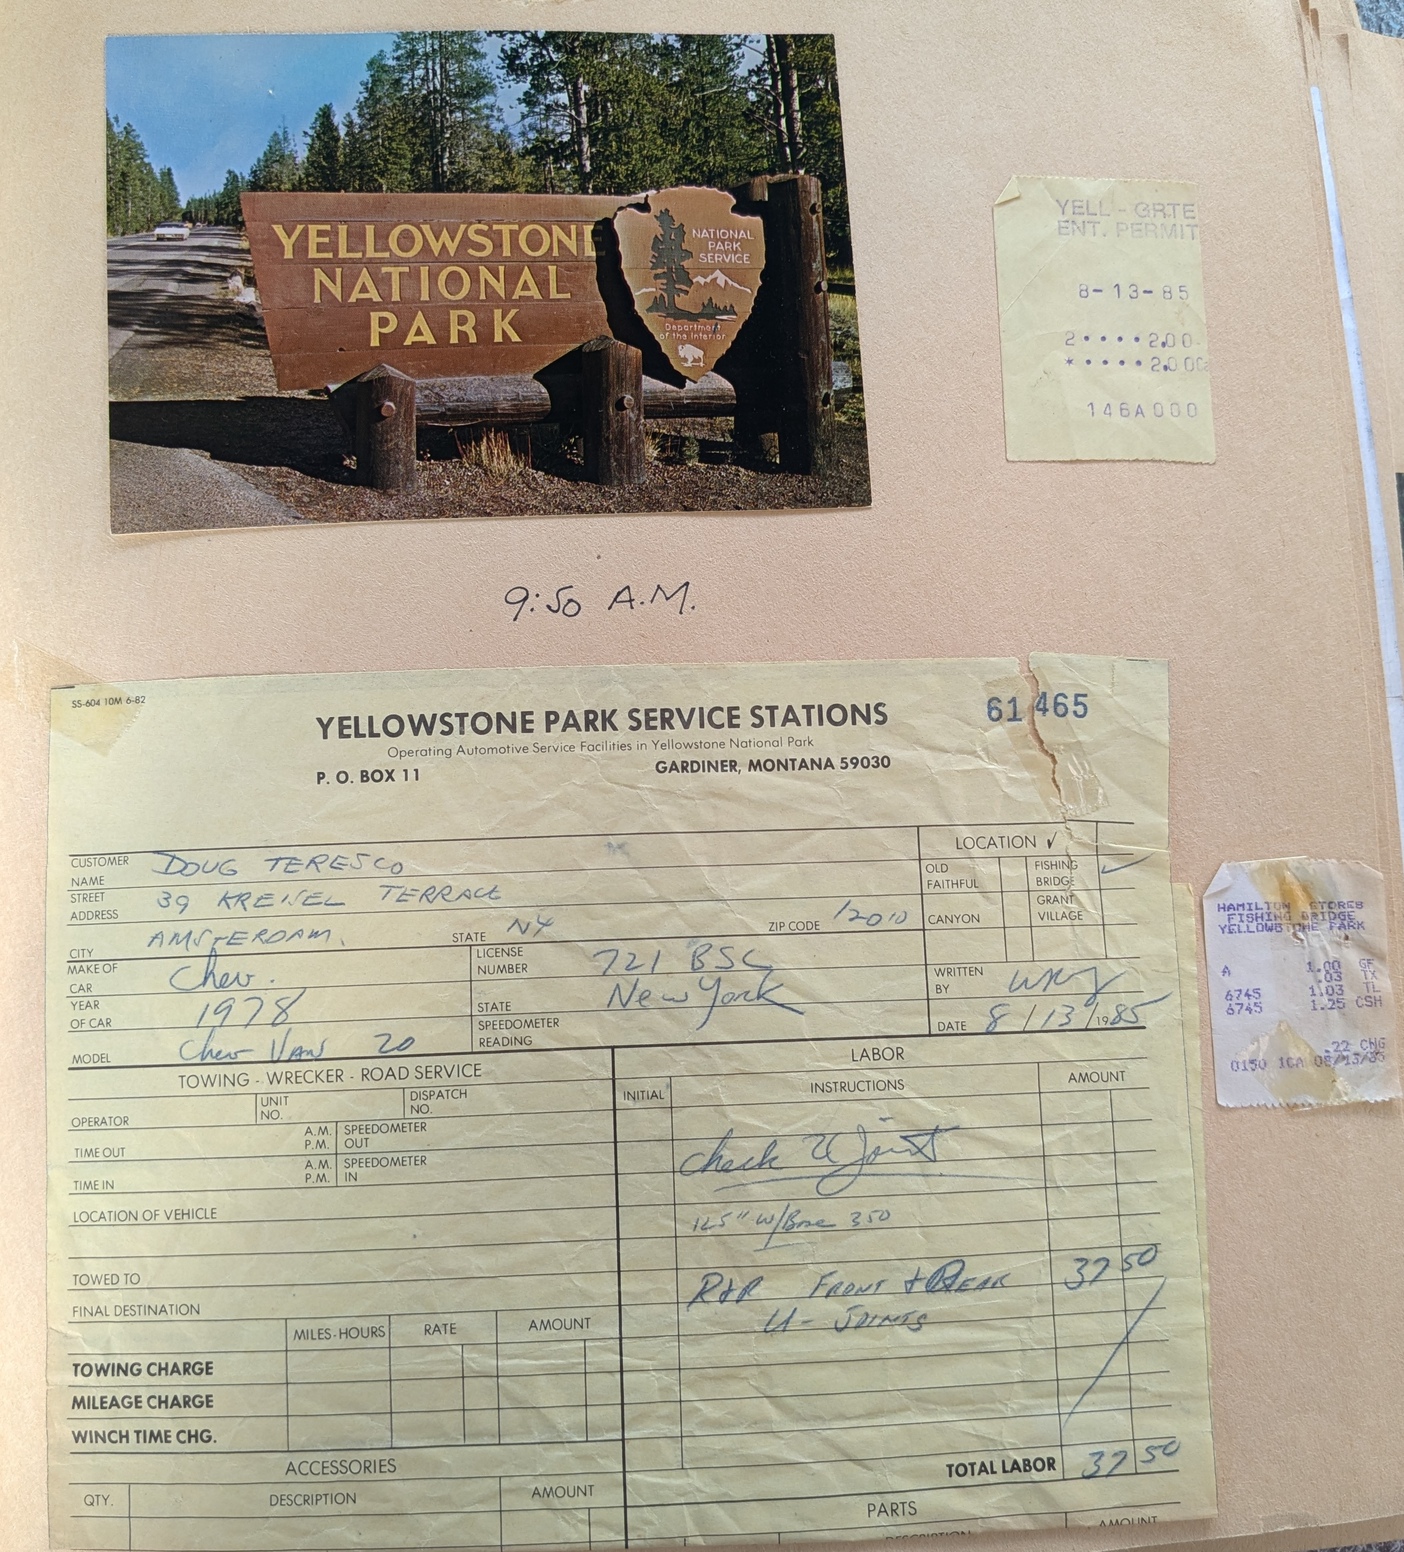 YELLOWSTONE
NATIONAL
PARK
NATIONAL
PARK
SERVICE
Department
of the Interior
YELL - GRTE
ENT. PERMIT
8-13-85
2 • • • • 2.00
* • • • • 2.00
146A000
9:50 A.M.
SS-604 10M 6-82
YELLOWSTONE PARK SERVICE STATIONS
61465
Operating Automotive Service Facilities in Yellowstone National Park
P. O. BOX 11 GARDINER, MONTANA 59030
LOCATION ✓
CUSTOMER NAME DOUG TERESCO
OLD FAITHFUL
FISHING BRIDGE ✓
STREET ADDRESS 39 KREISEL TERRACE
CANYON
GRANT VILLAGE
CITY AMSTERDAM, STATE NY ZIP CODE 12010
MAKE OF CAR Chev. LICENSE NUMBER 721 BSC
WRITTEN BY
YEAR OF CAR 1978 STATE New York
DATE 8/13/1985
MODEL Chev VAN 20 SPEEDOMETER READING
TOWING - WRECKER - ROAD SERVICE
LABOR
INITIAL INSTRUCTIONS AMOUNT
OPERATOR UNIT NO. DISPATCH NO.
TIME OUT A.M. P.M. SPEEDOMETER OUT
TIME IN A.M. P.M. SPEEDOMETER IN
check U Joint
LOCATION OF VEHICLE
125" W/Base 350
TOWED TO
R+R FRONT + REAR 37 50
U-JOINTS
FINAL DESTINATION
MILES-HOURS RATE AMOUNT
TOWING CHARGE
MILEAGE CHARGE
WINCH TIME CHG.
TOTAL LABOR 37 50
ACCESSORIES
QTY. DESCRIPTION AMOUNT
PARTS
DESCRIPTION AMOUNT
HAMILTON STORES
FISHING BRIDGE
YELLOWSTONE PARK
A 1.00 GF
.03 TX
6745 1.03 TL
6745 1.25 CSH
.22 CHG
0150 1CA 08/13/85